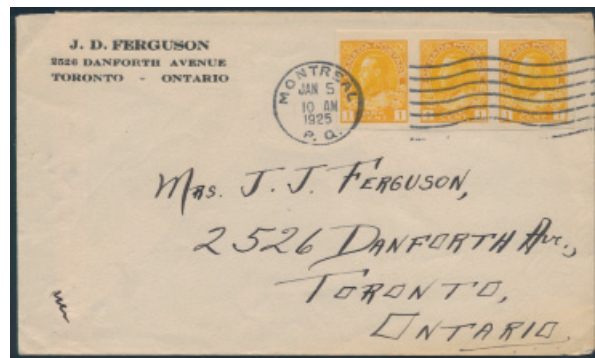 J. D. FERGUSON
2526 DANFORTH AVENUE
TORONTO - ONTARIO
MONTREAL
JAN 5
10 AM
1925
P. Q.
1 1
1 1
1 1
MRS. J. J. FERGUSON,
2526 DANFORTH AVE.,
TORONTO,
ONTARIO.